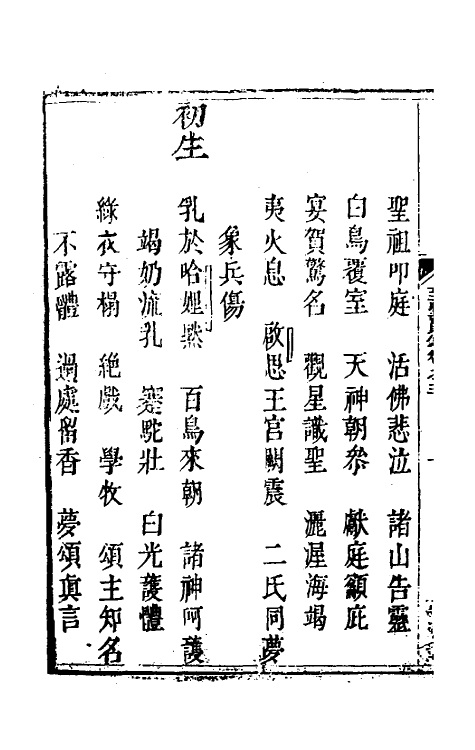 聖祖叩庭　活佛悲泣　諸山告靈
白鳥覆室　天神朝叅　獻庭籲庇
宴賀驚名　觀星識聖　灑渥海竭
夷火息　啟思王宮闕震　二氏同夢
象兵傷
初生
乳於哈娌默　百鳥來朝　諸神呵護
竭奶流乳　蹇駝壯　白光護體
綠衣守榻　絶戲　學牧　頌主知名
不露體　過處畱香　夢頌真言